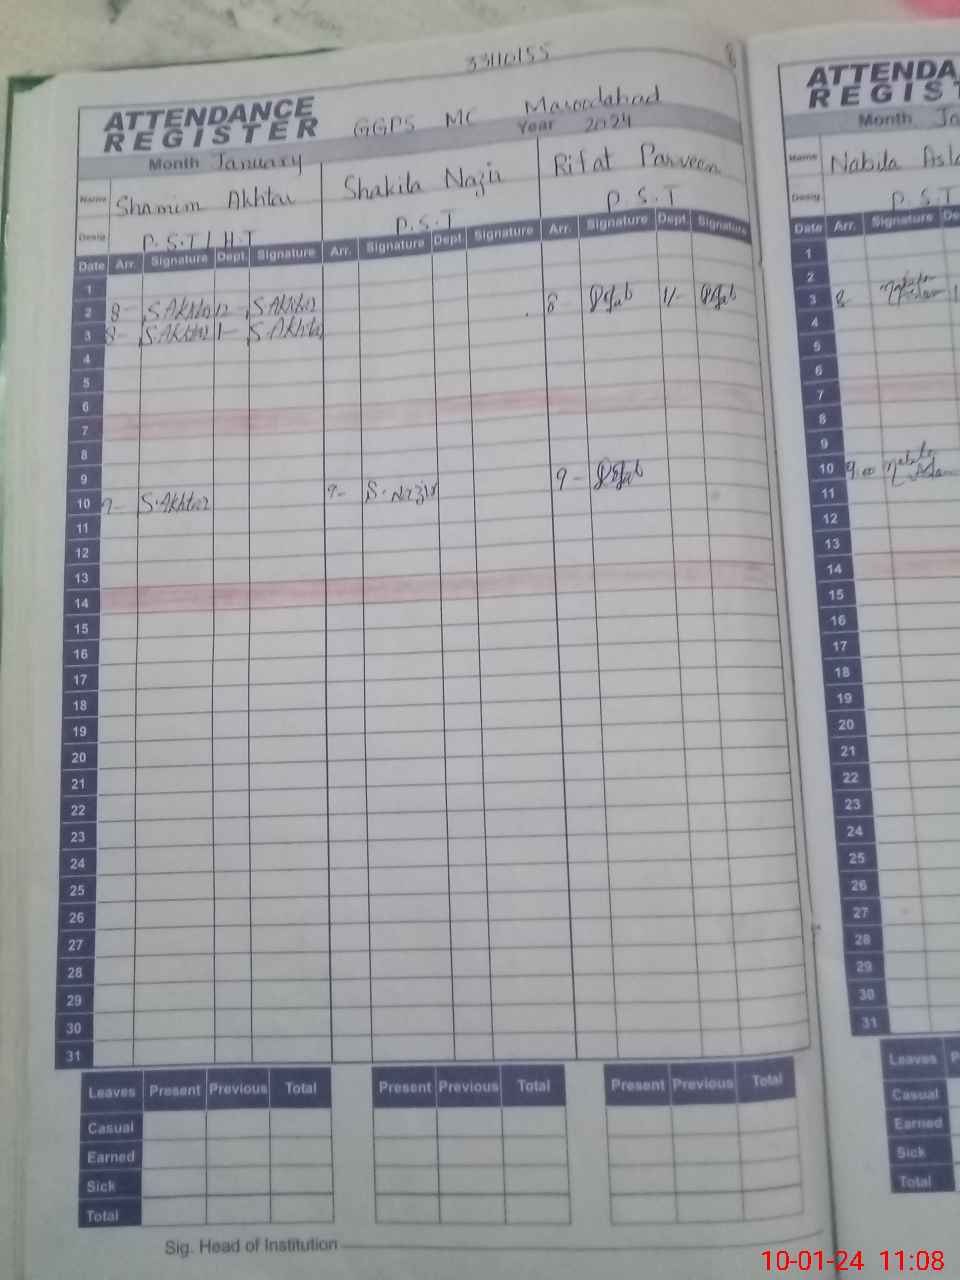 33110155
8
ATTENDANCE REGISTER
GGPS MC Masoodabad
Month January
Year 2024
Name Shamim Akhtar
Shakila Nazir
Rifat Parveen
Desig P.S.T / H.T
P.S.T
P.S.T
Date Arr. Signature Dept. Signature Arr. Signature Dept Signature Arr. Signature Dept. Signature
1
2 8- S.Akhtar 12- S.Akhtar 8- 1/-
3 8- S.Akhtar 1- S.Akhtar
4
5
6
7
8
9
10 9- S.Akhtar 9- S.Nazir 9-
11
12
13
14
15
16
17
18
19
20
21
22
23
24
25
26
27
28
29
30
31
Leaves Present Previous Total Present Previous Total Present Previous Total
Casual
Earned
Sick
Total
Sig. Head of Institution
ATTENDA
REGIST
Month Ja
Name Nabila Asla
Desig P.S.T
Date Arr. Signature De
1
2
3 8 Nabila Aslam
4
5
6
7
8
9
10 9.00 Nabila Aslam
11
12
13
14
15
16
17
18
19
20
21
22
23
24
25
26
27
28
29
30
31
Leaves P
Casual
Earned
Sick
Total
10-01-24 11:08